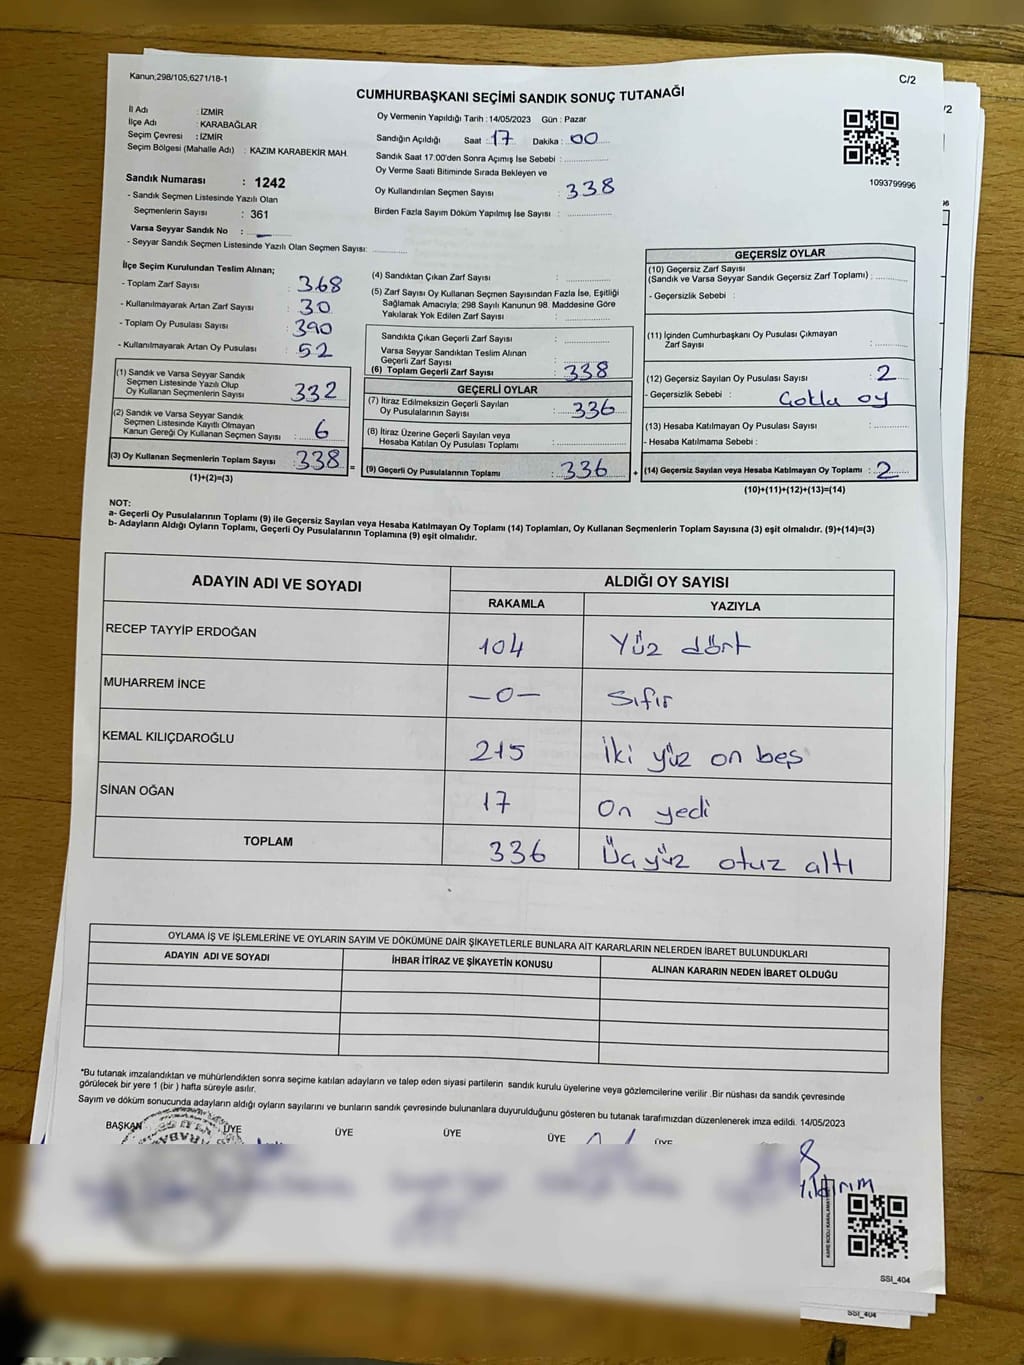 Kanun,298/105,6271/18-1
C/2
CUMHURBAŞKANI SEÇİMİ SANDIK SONUÇ TUTANAĞI
/2
İl Adı : İZMİR
İlçe Adı : KARABAĞLAR
Seçim Çevresi : İZMİR
Seçim Bölgesi (Mahalle Adı) : KAZIM KARABEKİR MAH.
Sandık Numarası : 1242
- Sandık Seçmen Listesinde Yazılı Olan
Seçmenlerin Sayısı : 361
Varsa Seyyar Sandık No : —
- Seyyar Sandık Seçmen Listesinde Yazılı Olan Seçmen Sayısı:
Oy Vermenin Yapıldığı Tarih : 14/05/2023 Gün : Pazar
Sandığın Açıldığı Saat : 17 Dakika : 00
Sandık Saat 17:00'den Sonra Açımış İse Sebebi :
Oy Verme Saati Bitiminde Sırada Bekleyen ve
Oy Kullandırılan Seçmen Sayısı : 338
Birden Fazla Sayım Döküm Yapılmış İse Sayısı :
1093799996
İlçe Seçim Kurulundan Teslim Alınan;
- Toplam Zarf Sayısı : 368
- Kullanılmayarak Artan Zarf Sayısı : 30
- Toplam Oy Pusulası Sayısı : 390
- Kullanılmayarak Artan Oy Pusulası : 52
(1) Sandık ve Varsa Seyyar Sandık
Seçmen Listesinde Yazılı Olup
Oy Kullanan Seçmenlerin Sayısı : 332
(2) Sandık ve Varsa Seyyar Sandık
Seçmen Listesinde Kayıtlı Olmayan
Kanun Gereği Oy Kullanan Seçmen Sayısı : 6
(3) Oy Kullanan Seçmenlerin Toplam Sayısı : 338 =
(1)+(2)=(3)
(4) Sandıktan Çıkan Zarf Sayısı :
(5) Zarf Sayısı Oy Kullanan Seçmen Sayısından Fazla İse, Eşitliği
Sağlamak Amacıyla; 298 Sayılı Kanunun 98. Maddesine Göre
Yakılarak Yok Edilen Zarf Sayısı :
Sandıkta Çıkan Geçerli Zarf Sayısı :
Varsa Seyyar Sandıktan Teslim Alınan
Geçerli Zarf Sayısı :
(6) Toplam Geçerli Zarf Sayısı : 338
GEÇERLİ OYLAR
(7) İtiraz Edilmeksizin Geçerli Sayılan
Oy Pusulalarının Sayısı : 336
(8) İtiraz Üzerine Geçerli Sayılan veya
Hesaba Katılan Oy Pusulası Toplamı :
(9) Geçerli Oy Pusulalarının Toplamı : 336 +
GEÇERSİZ OYLAR
(10) Geçersiz Zarf Sayısı
(Sandık ve Varsa Seyyar Sandık Geçersiz Zarf Toplamı) :
- Geçersizlik Sebebi :
(11) İçinden Cumhurbaşkanı Oy Pusulası Çıkmayan
Zarf Sayısı :
(12) Geçersiz Sayılan Oy Pusulası Sayısı : 2
- Geçersizlik Sebebi : Çoklu oy
(13) Hesaba Katılmayan Oy Pusulası Sayısı :
- Hesaba Katılmama Sebebi :
(14) Geçersiz Sayılan veya Hesaba Katılmayan Oy Toplamı : 2
(10)+(11)+(12)+(13)=(14)
NOT:
a- Geçerli Oy Pusulalarının Toplamı (9) ile Geçersiz Sayılan veya Hesaba Katılmayan Oy Toplamı (14) Toplamları, Oy Kullanan Seçmenlerin Toplam Sayısına (3) eşit olmalıdır. (9)+(14)=(3)
b- Adayların Aldığı Oyların Toplamı, Geçerli Oy Pusulalarının Toplamına (9) eşit olmalıdır.
ADAYIN ADI VE SOYADI ALDIĞI OY SAYISI
RAKAMLA YAZIYLA
RECEP TAYYİP ERDOĞAN 104 Yüz dört
MUHARREM İNCE —0— Sıfır
KEMAL KILIÇDAROĞLU 215 İki yüz on beş
SİNAN OĞAN 17 On yedi
TOPLAM 336 Üç yüz otuz altı
OYLAMA İŞ VE İŞLEMLERİNE VE OYLARIN SAYIM VE DÖKÜMÜNE DAİR ŞİKAYETLERLE BUNLARA AİT KARARLARIN NELERDEN İBARET BULUNDUKLARI
ADAYIN ADI VE SOYADI İHBAR İTİRAZ VE ŞİKAYETİN KONUSU ALINAN KARARIN NEDEN İBARET OLDUĞU
*Bu tutanak imzalandıktan ve mühürlendikten sonra seçime katılan adayların ve talep eden siyasi partilerin sandık kurulu üyelerine veya gözlemcilerine verilir .Bir nüshası da sandık çevresinde
görülecek bir yere 1 (bir ) hafta süreyle asılır.
Sayım ve döküm sonucunda adayların aldığı oyların sayılarını ve bunların sandık çevresinde bulunanlara duyurulduğunu gösteren bu tutanak tarafımızdan düzenlenerek imza edildi. 14/05/2023
BAŞKAN ÜYE ÜYE ÜYE ÜYE ÜYE
Yıldırım
SSİ_404
SSİ_404